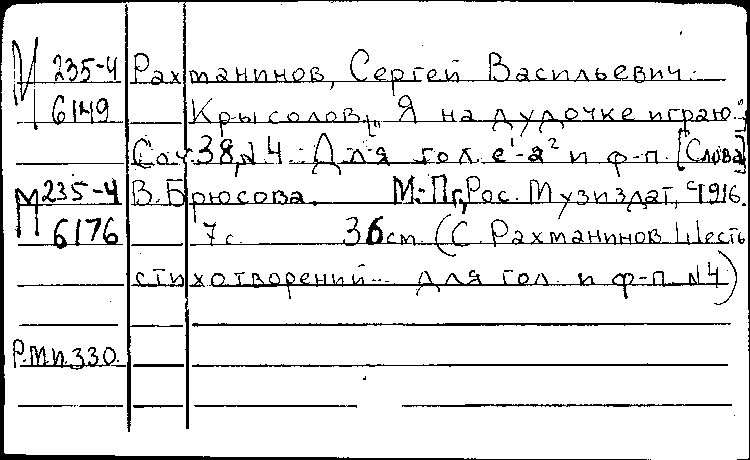 М 235-4 Рахманинов, Сергей Васильевич.
6149 Крысолов „Я на дудочке играю..."
Соч. 38, №4. Для гол. e¹-a² и ф-п. [Слова]
М 235-4 В. Брюсова. М.-Пг., Рос. Музиздат, с1916.
6176 7 с. 36 см. (С. Рахманинов. Шесть
стихотворений... для гол. и ф-п. №4)
Р.М.П.330.